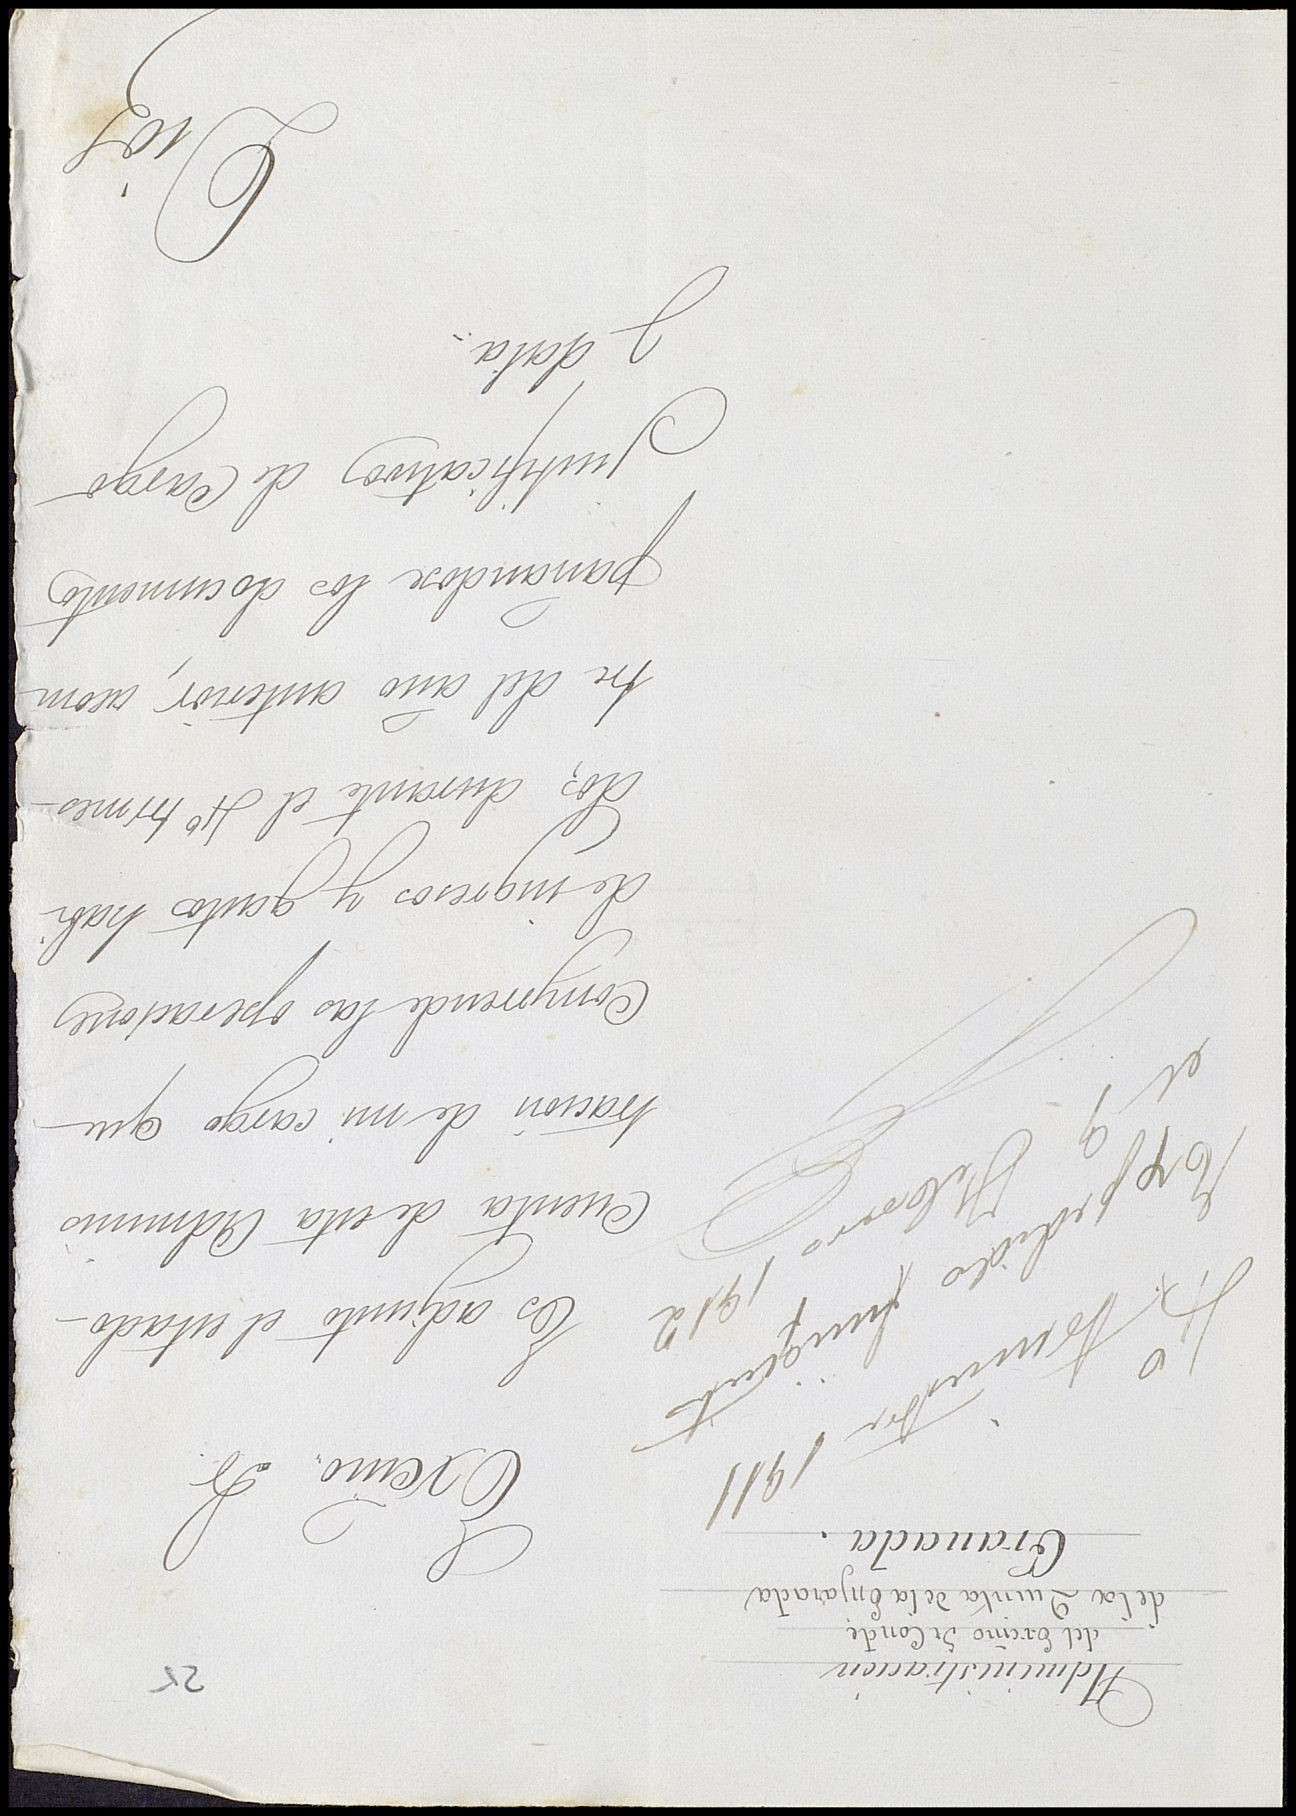 25
Administración
del Excmo Sr Conde
de la Quinta de la Enjarada
Granada.
4º trimestre 1911
Expedido finiquito
el 9 Febrero 1912
Excmo. Sr.
Es adjunto el estado-
cuenta de esta Adminis
tración de mi cargo que
comprende las operaciones
de ingresos y gastos habi
dos, durante el 4º trimes-
tre del año anterior, acom
pañandose los documentos
justificativos de Cargo
y data.-
Dios